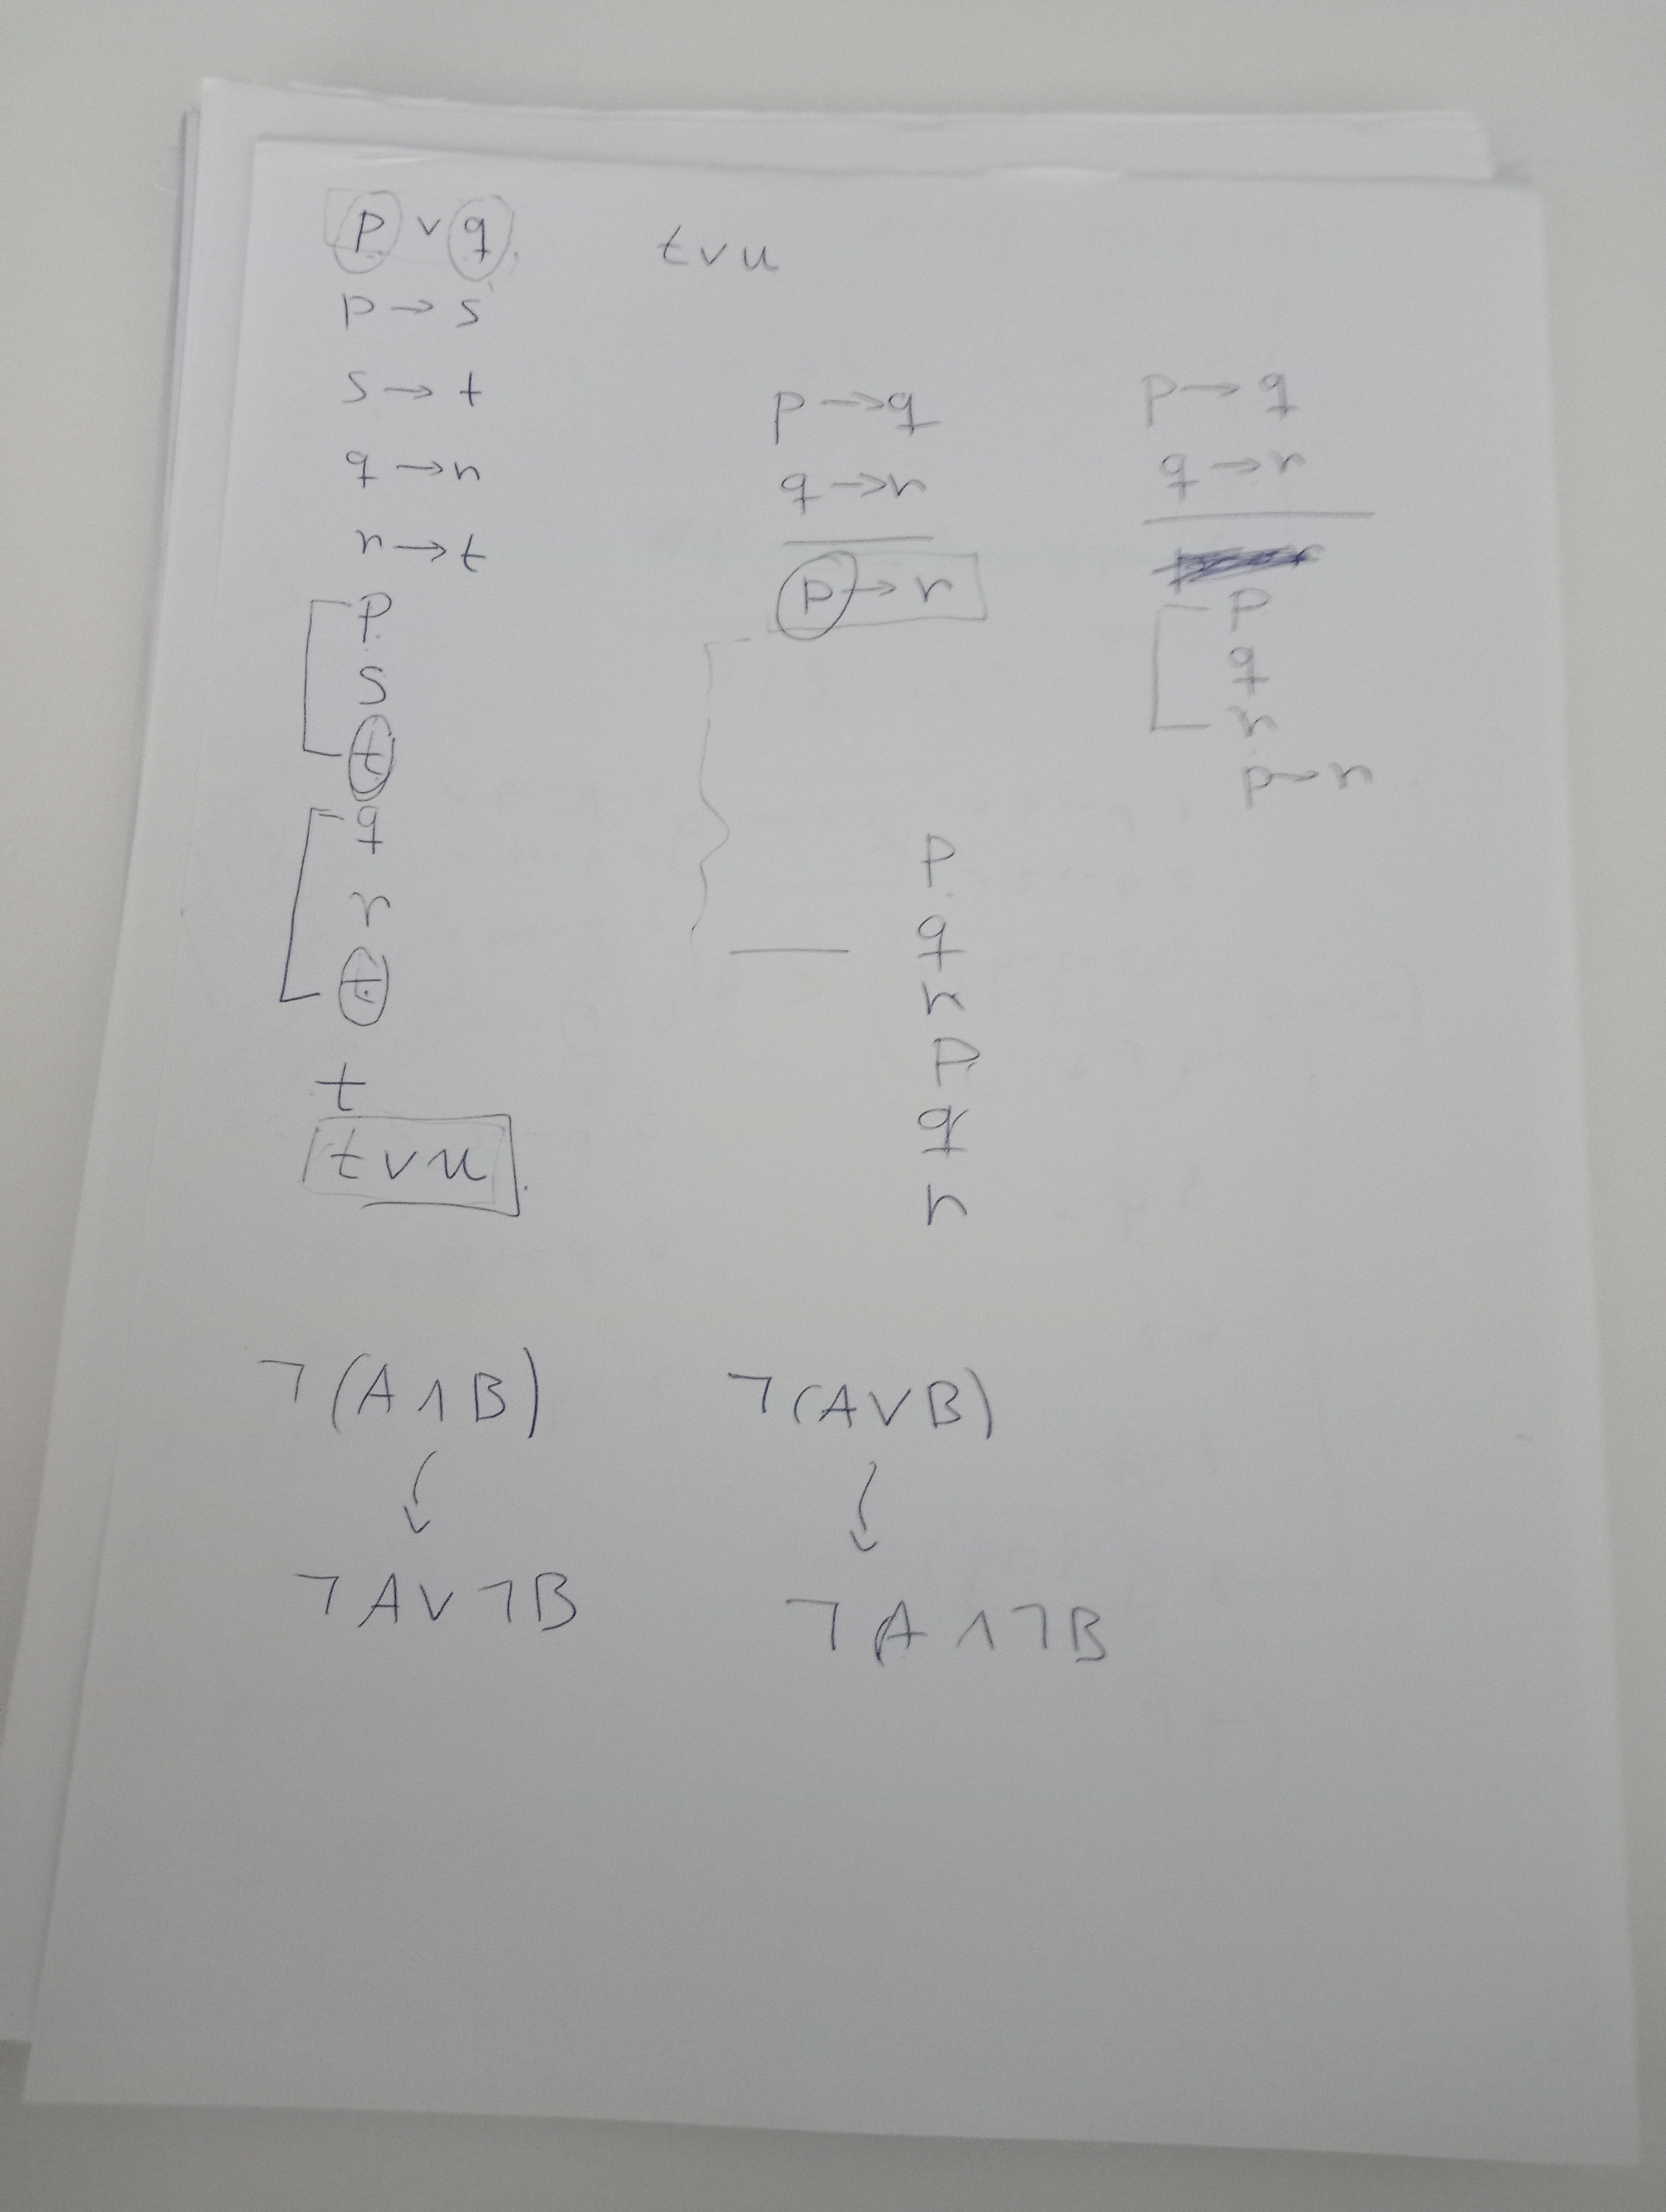 p ∨ q
p → s
s → t
q → r
r → t
p
s
t
q
r
t
t
t ∨ u
t ∨ u
p → q
q → r
p → r
p
q
r
p
q
r
p → q
q → r
p
q
r
p → r
¬(A ∧ B)
¬A ∨ ¬B
¬(A ∨ B)
¬A ∧ ¬B